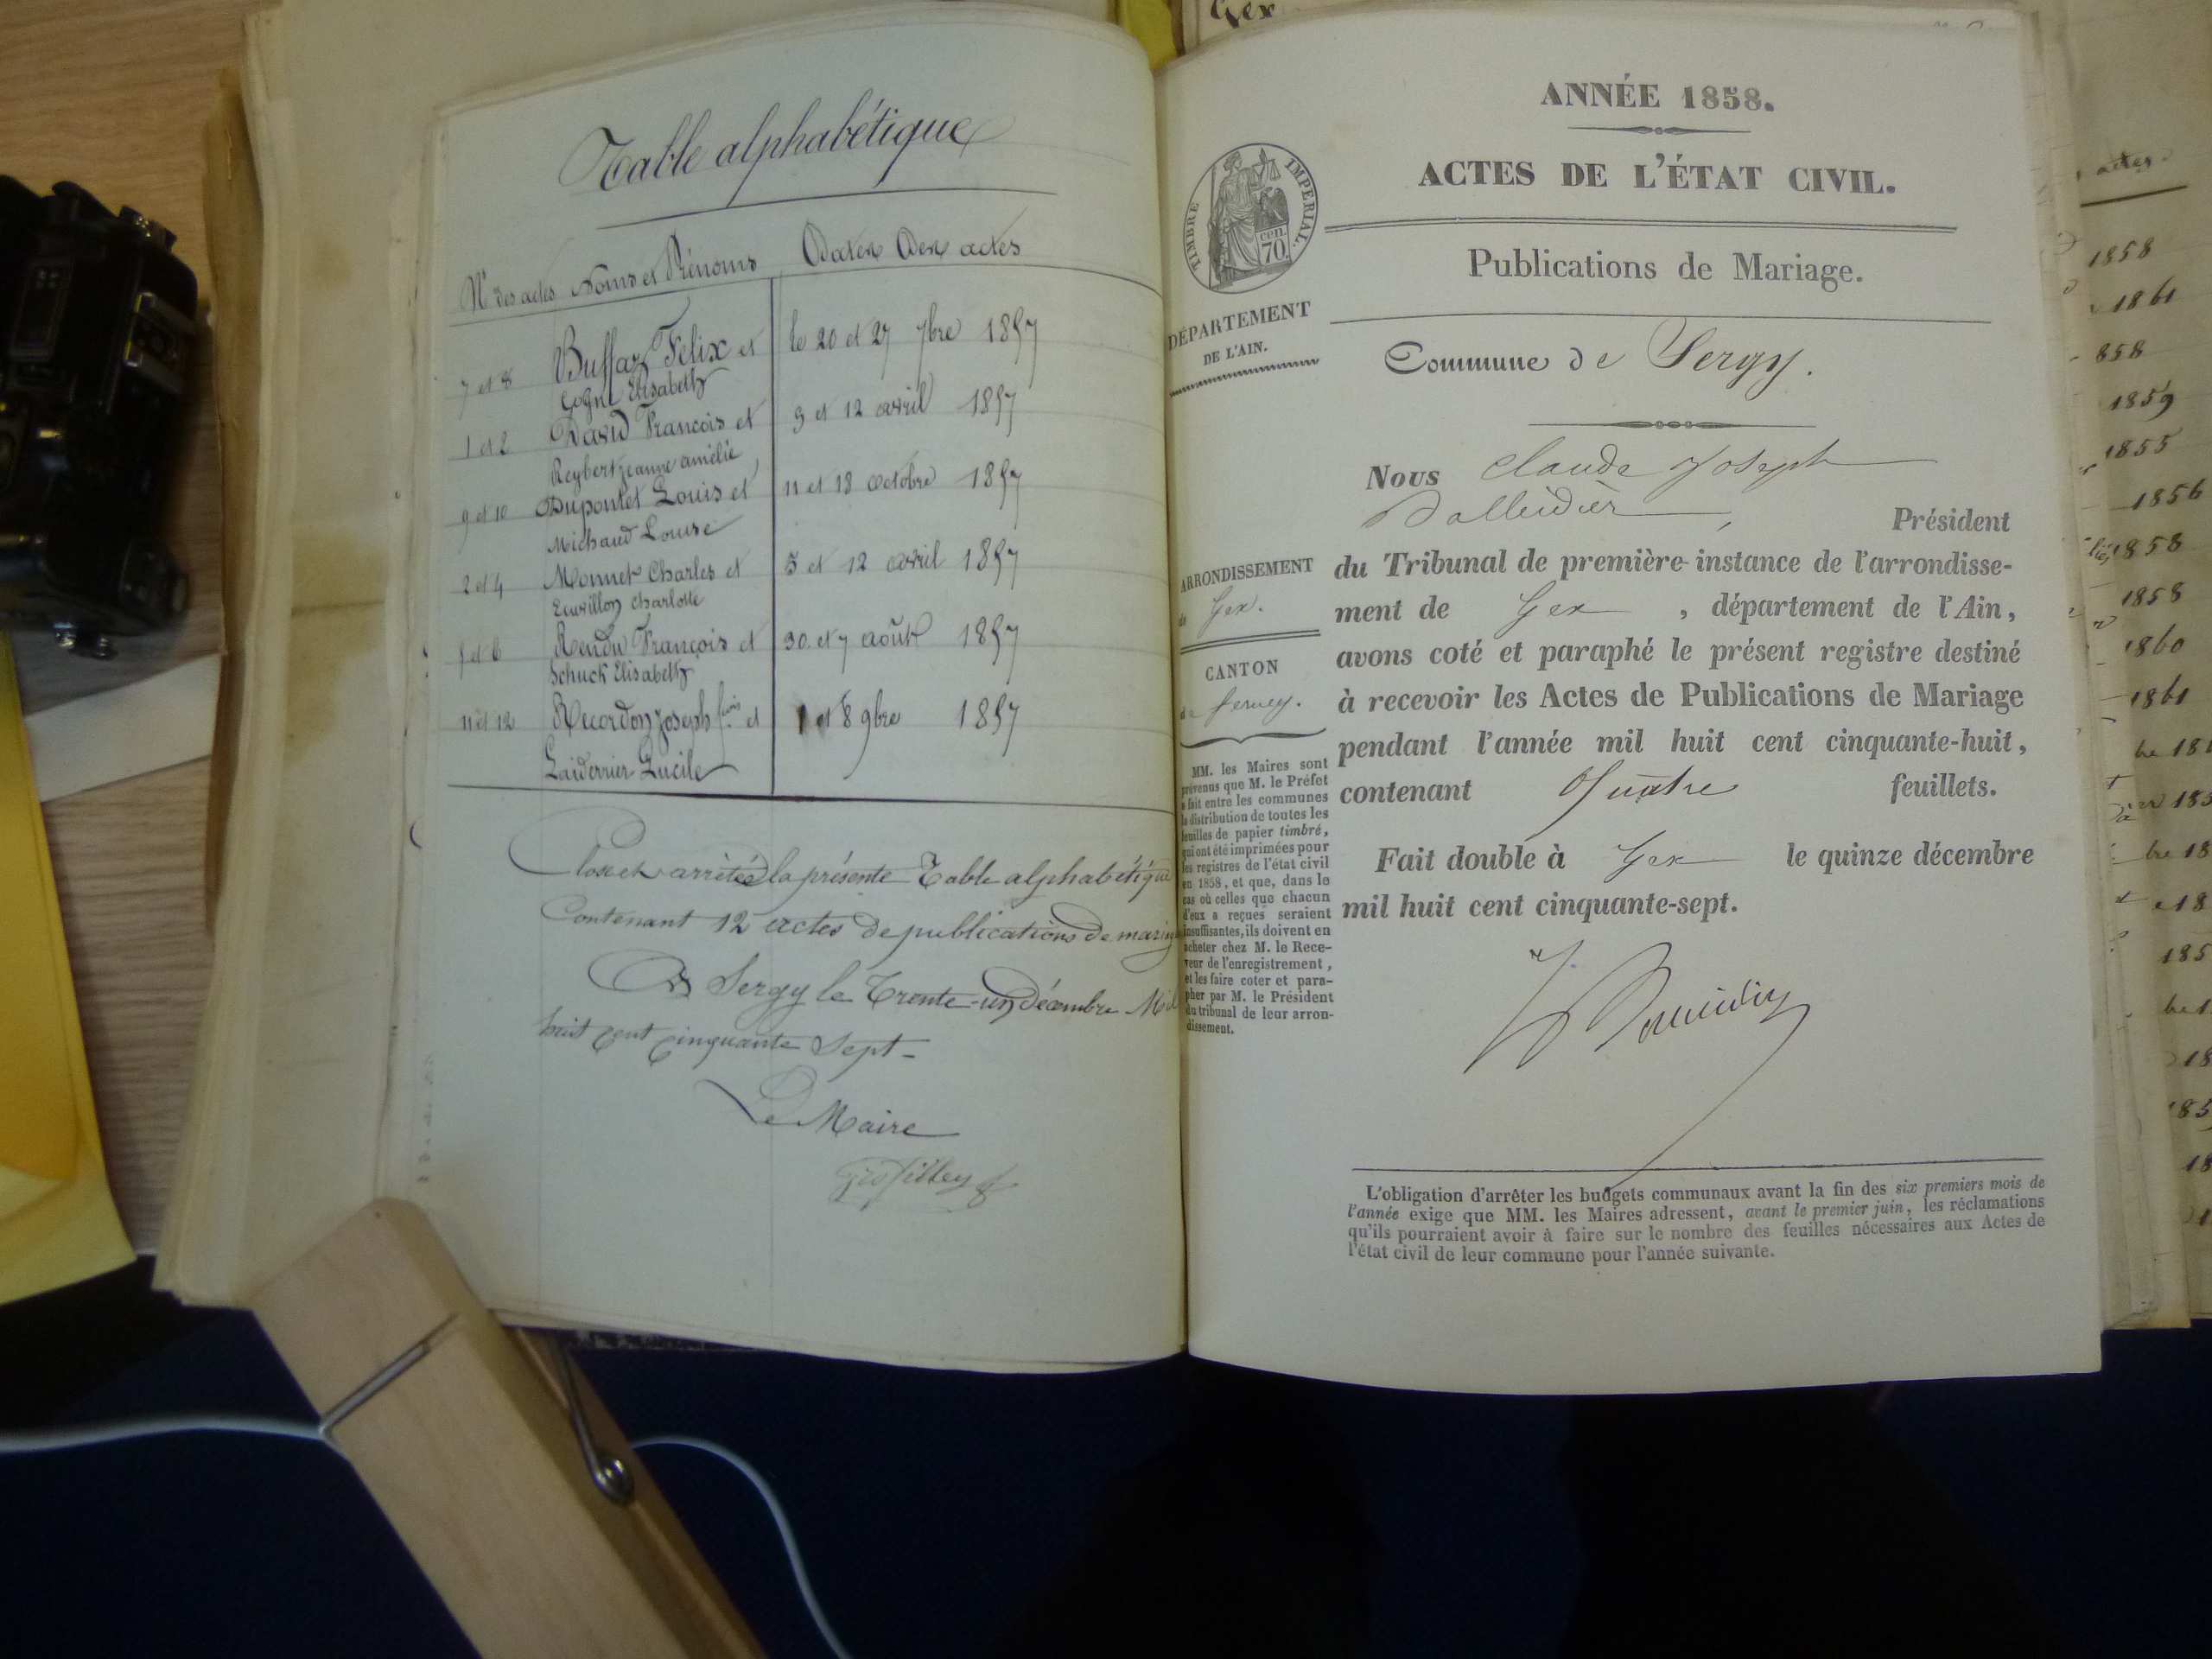 Table alphabétique
Nos des actes Noms et Prénoms Dates des actes
7 et 8 Buffaz Félix et le 20 et 27 7bre 1857
Gogne Elisabeth
1 et 2 David François et 9 et 12 avril 1857
Reybert jeanne amélie
9 et 10 Dupontet Louis et 11 et 18 octobre 1857
Michaud Louise
2 et 4 Monnet Charles et 5 et 12 avril 1857
Ecuvillon Charlotte
5 et 6 Rendu François et 30 et 7 août 1857
Schuck Elisabeth
11 et 12 Recordon Joseph fcois et 1 et 8 9bre 1857
Laiderrier Lucile
Close et arrêtée la présente Table alphabétique
Contenant 12 actes de publications de mariage
A Sergy le Trente-un décembre Mil
huit cent cinquante Sept
Le Maire
Gex
ANNÉE 1858.
ACTES DE L'ÉTAT CIVIL.
TIMBRE IMPÉRIAL.
cen.
70.
Publications de Mariage.
DÉPARTEMENT
DE L'AIN.
Commune de Sergy.
Nous Claude Joseph
Président
du Tribunal de première instance de l'arrondisse-
ment de Gex, département de l'Ain,
avons coté et paraphé le présent registre destiné
à recevoir les Actes de Publications de Mariage
pendant l'année mil huit cent cinquante-huit,
contenant Quatre feuillets.
Fait double à Gex le quinze décembre
mil huit cent cinquante-sept.
ARRONDISSEMENT
de Gex.
CANTON
de ferney.
MM. les Maires sont
prévenus que M. le Préfet
a fait entre les communes
la distribution de toutes les
feuilles de papier timbré,
qui ont été imprimées pour
les registres de l'état civil
en 1858, et que, dans le
cas où celles que chacun
d'eux a reçues seraient
insuffisantes, ils doivent en
acheter chez M. le Rece-
veur de l'enregistrement,
et les faire coter et para-
pher par M. le Président
du tribunal de leur arron-
dissement.
L'obligation d'arrêter les budgets communaux avant la fin des six premiers mois de
l'année exige que MM. les Maires adressent, avant le premier juin, les réclamations
qu'ils pourraient avoir à faire sur le nombre des feuilles nécessaires aux Actes de
l'état civil de leur commune pour l'année suivante.
actes
1858
1861
858
1859
1855
1856
1858
1858
1860
1861